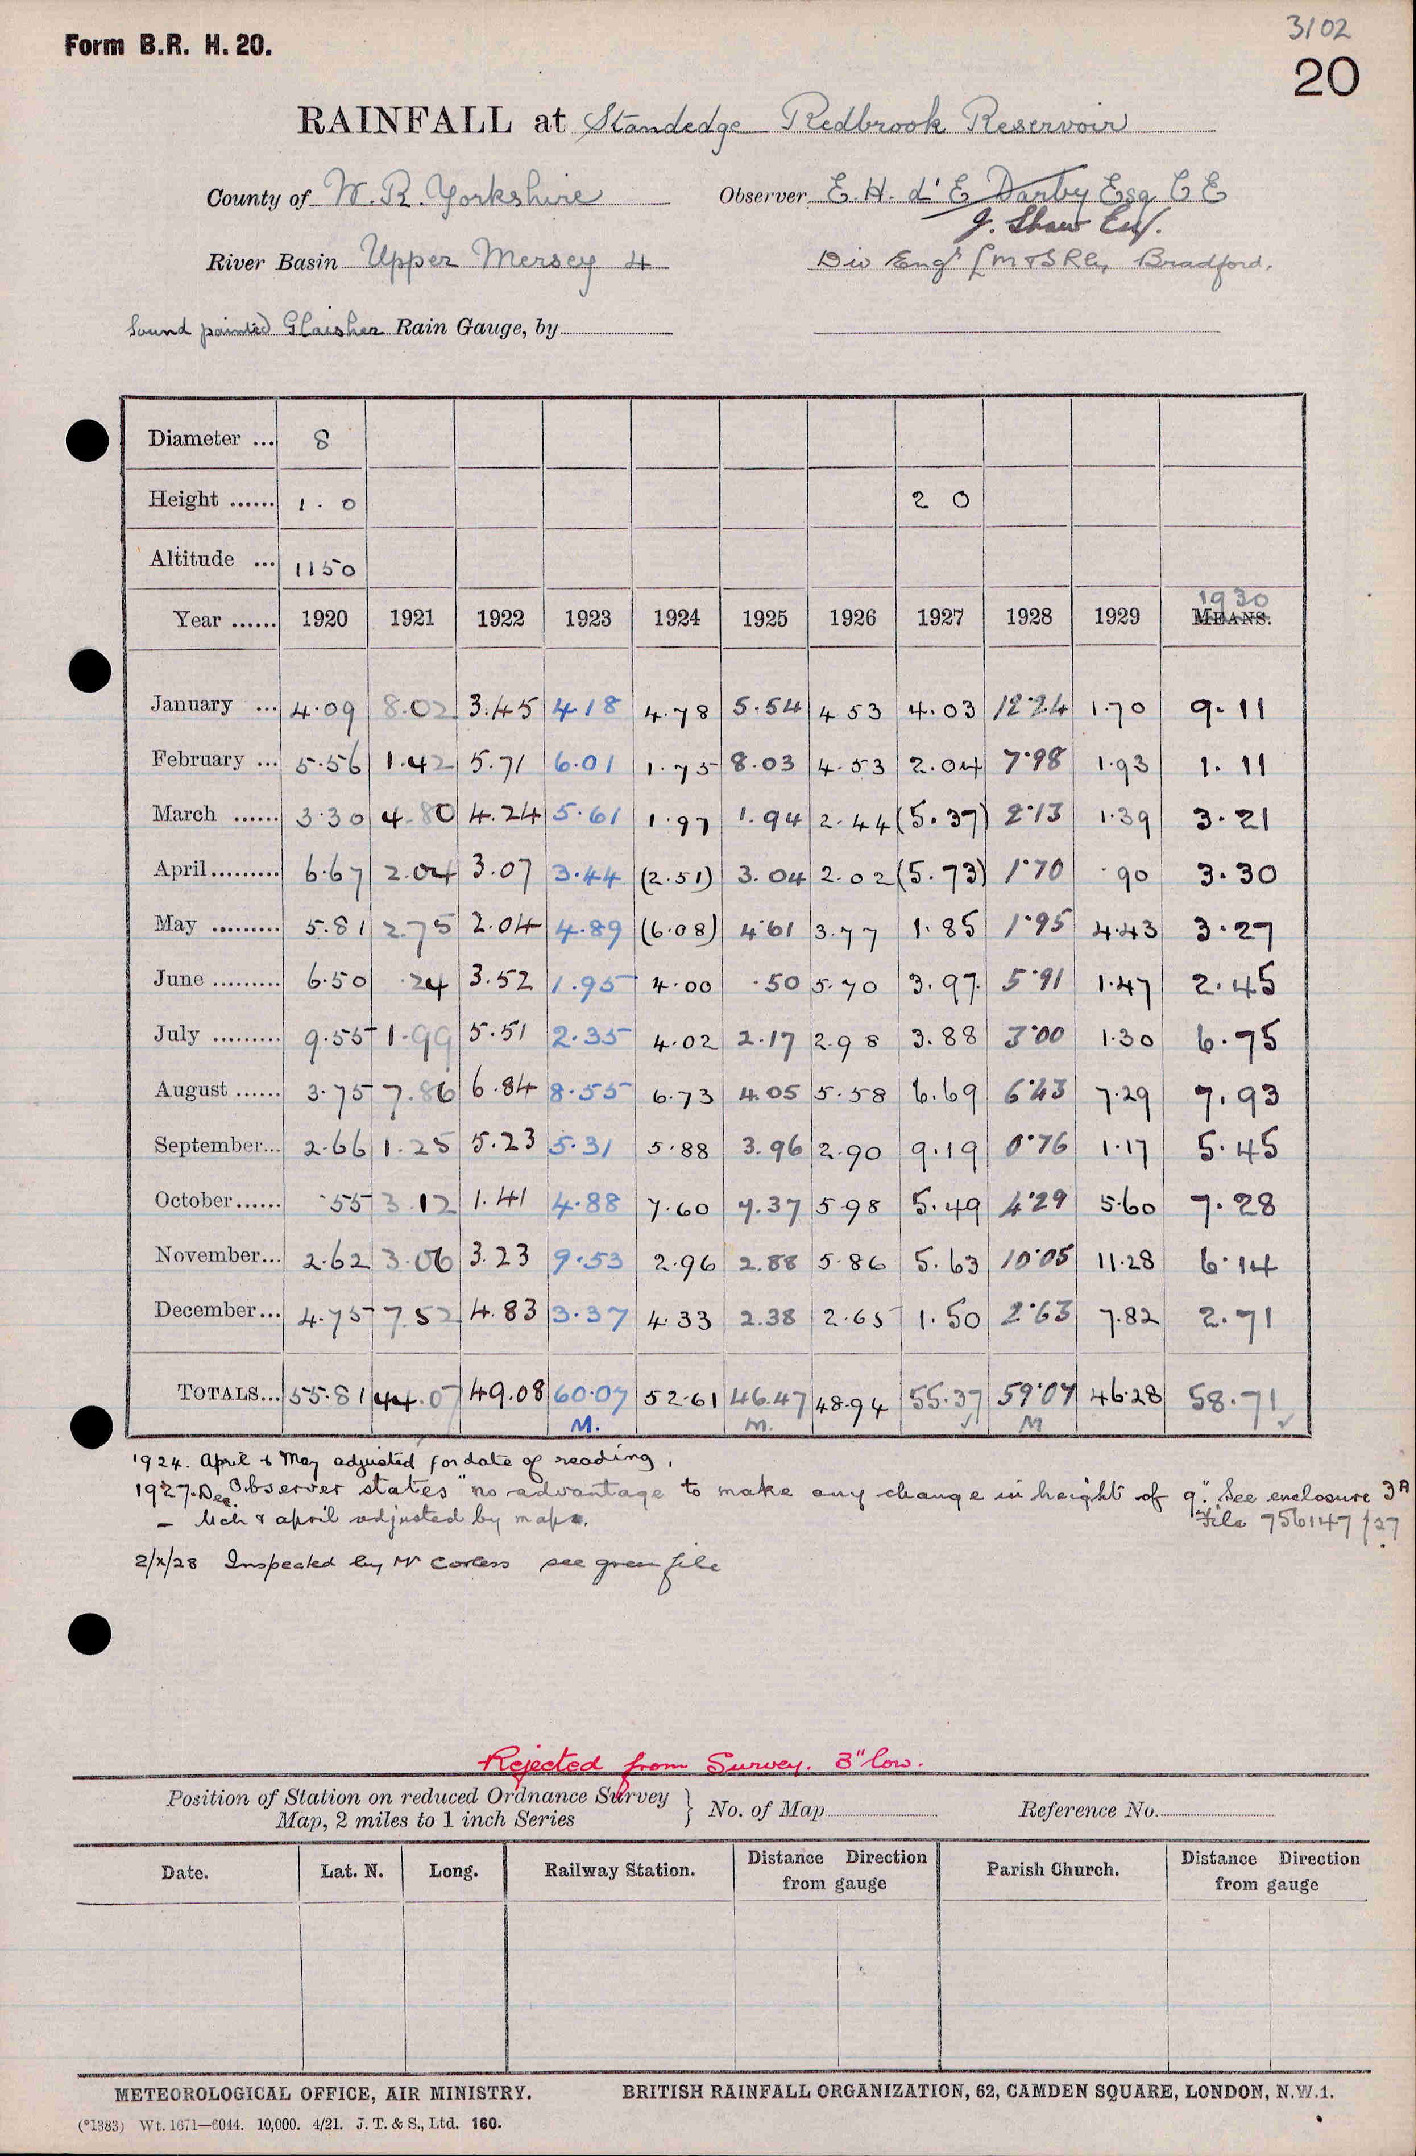 3102
Form B.R. H. 20.
20
RAINFALL at Standedge Redbrook Reservoir
County of W. R. Yorkshire Observer E. H. d'E Darby Esq C E
J. Shaw Esq.
River Basin Upper Mersey 4 Div Engr LM & S Rly, Bradford.
Sound painted Glaisher Rain Gauge, by
Diameter ... 8
Height ...... 1 . 0 2 0
Altitude ... 1150
1930
Year ...... 1920 1921 1922 1923 1924 1925 1926 1927 1928 1929 MEANS.
January ... 4.09 8.02 3.45 4.18 4.78 5.54 4 53 4.03 12.24 1.70 9.11
February ... 5.56 1.42 5.71 6.01 1.75 8.03 4.53 2.04 7.98 1.93 1.11
March ...... 3.30 4.80 4.24 5.61 1.97 1.94 2.44 (5.37) 2.13 1.39 3.21
April ......... 6.67 2.04 3.07 3.44 (2.51) 3.04 2.02 (5.73) 1.70 .90 3.30
May ......... 5.81 2.75 2.04 4.89 (6.08) 4.61 3.77 1.85 1.95 4.43 3.27
June ......... 6.50 .24 3.52 1.95 4.00 .50 5.70 3.97 5.91 1.47 2.45
July ......... 9.55 1.99 5.51 2.35 4.02 2.17 2.98 3.88 3.00 1.30 6.75
August ...... 3.75 7.86 6.84 8.55 6.73 4.05 5.58 6.69 6.43 7.29 7.93
September... 2.66 1.25 5.23 5.31 5.88 3.96 2.90 9.19 0.76 1.17 5.45
October...... .55 3.12 1.41 4.88 7.60 7.37 5.98 5.49 4.29 5.60 7.28
November... 2.62 3.06 3.23 9.53 2.96 2.88 5.86 5.63 10.05 11.28 6.14
December... 4.75 7.52 4.83 3.37 4.33 2.38 2.65 1.50 2.63 7.82 2.71
TOTALS... 55.81 44.07 49.08 60.07 52.61 46.47 48.94 55.37 59.07 46.28 58.71
M. m. M
1924. April & May adjusted for date of reading.
1927. Dec. Observer states "no advantage to make any change in height of g." See enclosure 3A
File 756147/27
— Mch & april adjusted by maps.
2/X/28 Inspected by Mr Corless see green file
Rejected from Survey. 3" low.
Position of Station on reduced Ordnance Survey } No. of Map Reference No.
Map, 2 miles to 1 inch Series
Date. Lat. N. Long. Railway Station. Distance Direction from gauge Parish Church. Distance Direction from gauge
METEOROLOGICAL OFFICE, AIR MINISTRY. BRITISH RAINFALL ORGANIZATION, 62, CAMDEN SQUARE, LONDON, N.W.1.
(*1383) Wt. 1671—6044. 10,000. 4/21. J. T. & S., Ltd. 160.